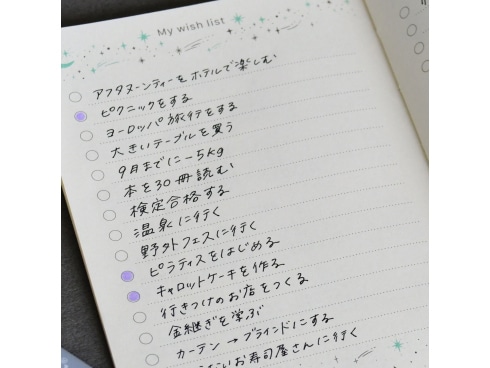 My wish list
アフタヌーンティーをホテルで楽しむ
ピクニックをする
ヨーロッパ旅行をする
大きいテーブルを買う
9月までに-5kg
本を30冊読む
検定合格する
温泉に行く
野外フェスに行く
ピラティスをはじめる
キャロットケーキを作る
行きつけのお店をつくる
金継ぎを学ぶ
カーテン→ブラインドにする
お寿司屋さんに行く